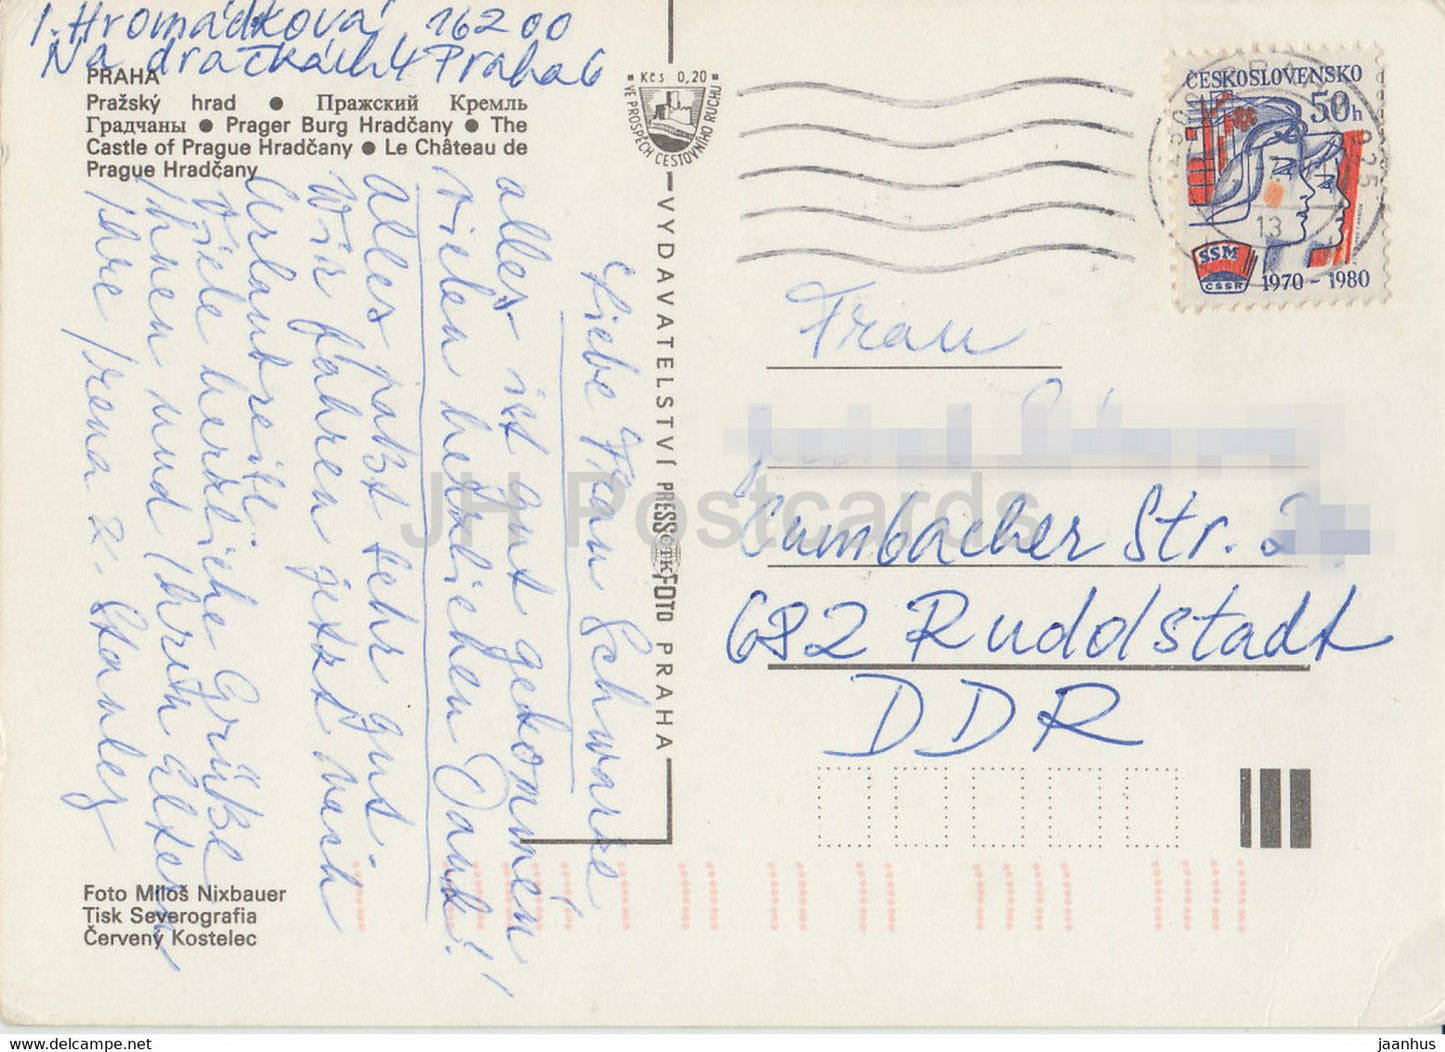 I. Hromádková 16200
Na dračkách 4 Praha 6
PRAHA
Pražský hrad ● Пражский Кремль
Градчаны ● Prager Burg Hradčany ● The
Castle of Prague Hradčany ● Le Château de
Prague Hradčany
Liebe Frau Schwarze
alles ist gut gekommen
vielen herzlichen Dank!!
alles paßt sehr gut.
Wir fahren jetzt nach
Viele herzliche Grüße
Ihnen und Ihren Eltern
Ihre Irena
Foto Miloš Nixbauer
Tisk Severografia
Červený Kostelec
Kčs 0,20
VE PROSPĚCH CESTOVNÍHO RUCHU
VYDAVATELSTVÍ PRESSFOTO PRAHA
ČTK
ČESKOSLOVENSKO
50h
SSM
ČSSR
1970 - 1980
13
Frau
Cumbacher Str.
682 Rudolstadt
DDR
JH Postcards
hippostcard.com
jaanhus